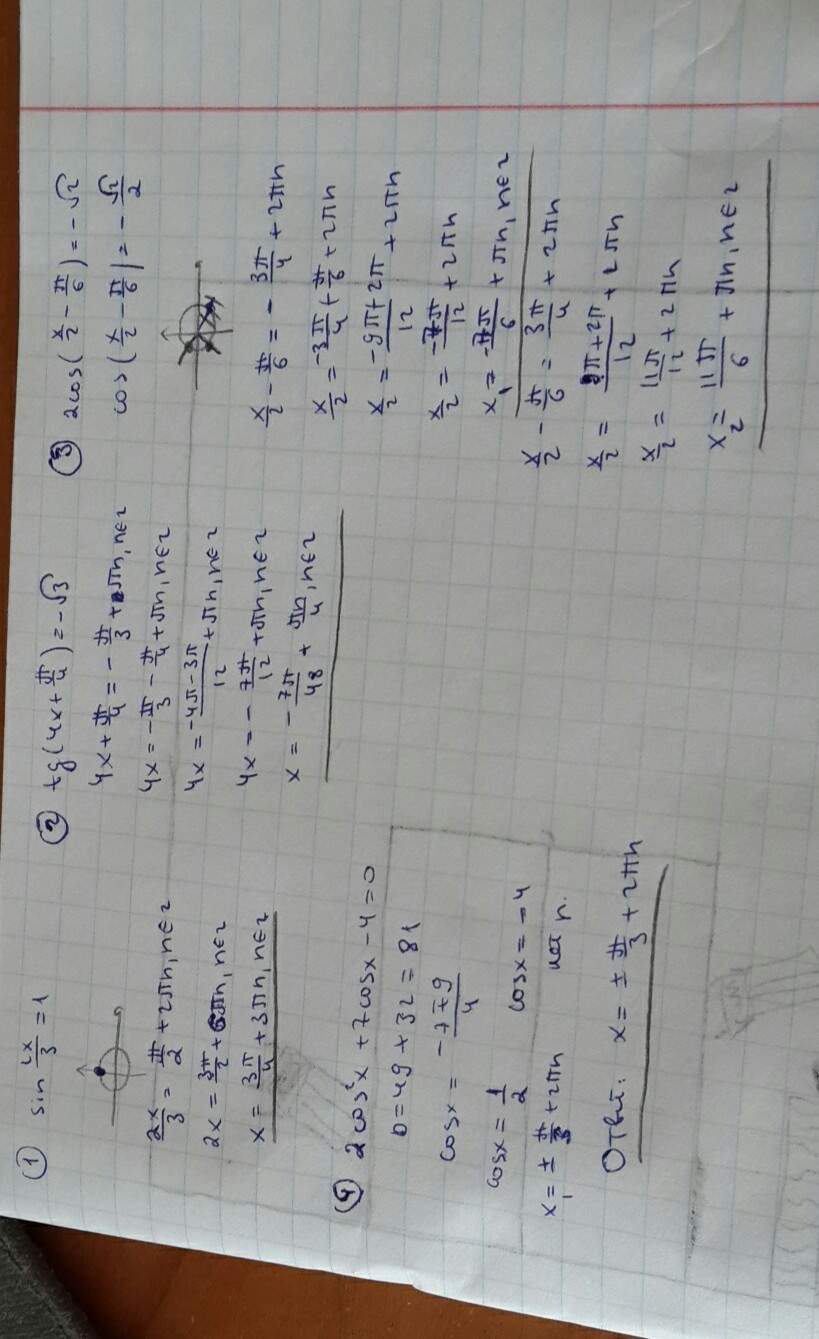 ① sin 2x/3 = 1
2x/3 = π/2 + 2πn, n∈z
2x = 3π/2 + 6πn, n∈z
x = 3π/4 + 3πn, n∈z
② tg(4x + π/4) = -√3
4x + π/4 = -π/3 + πn, n∈z
4x = -π/3 - π/4 + πn, n∈z
4x = (-4π-3π)/12 + πn, n∈z
4x = -7π/12 + πn, n∈z
x = -7π/48 + πn/4, n∈z
③ 2cos(x/2 - π/6) = -√2
cos(x/2 - π/6) = -√2/2
x/2 - π/6 = -3π/4 + 2πn
x/2 = -3π/4 + π/6 + 2πn
x/2 = (-9π+2π)/12 + 2πn
x/2 = -7π/12 + 2πn
x₁ = -7π/6 + πn, n∈z
x/2 - π/6 = 3π/4 + 2πn
x/2 = (9π+2π)/12 + 2πn
x/2 = 11π/12 + 2πn
x₂ = 11π/6 + πn, n∈z
④ 2cos²x + 7cosx - 4 = 0
D = 49 + 32 = 81
cosx = (-7∓9)/4
cosx = 1/2 cosx = -4
x₁ = ± π/3 + 2πn нет р.
Ответ: x = ± π/3 + 2πn